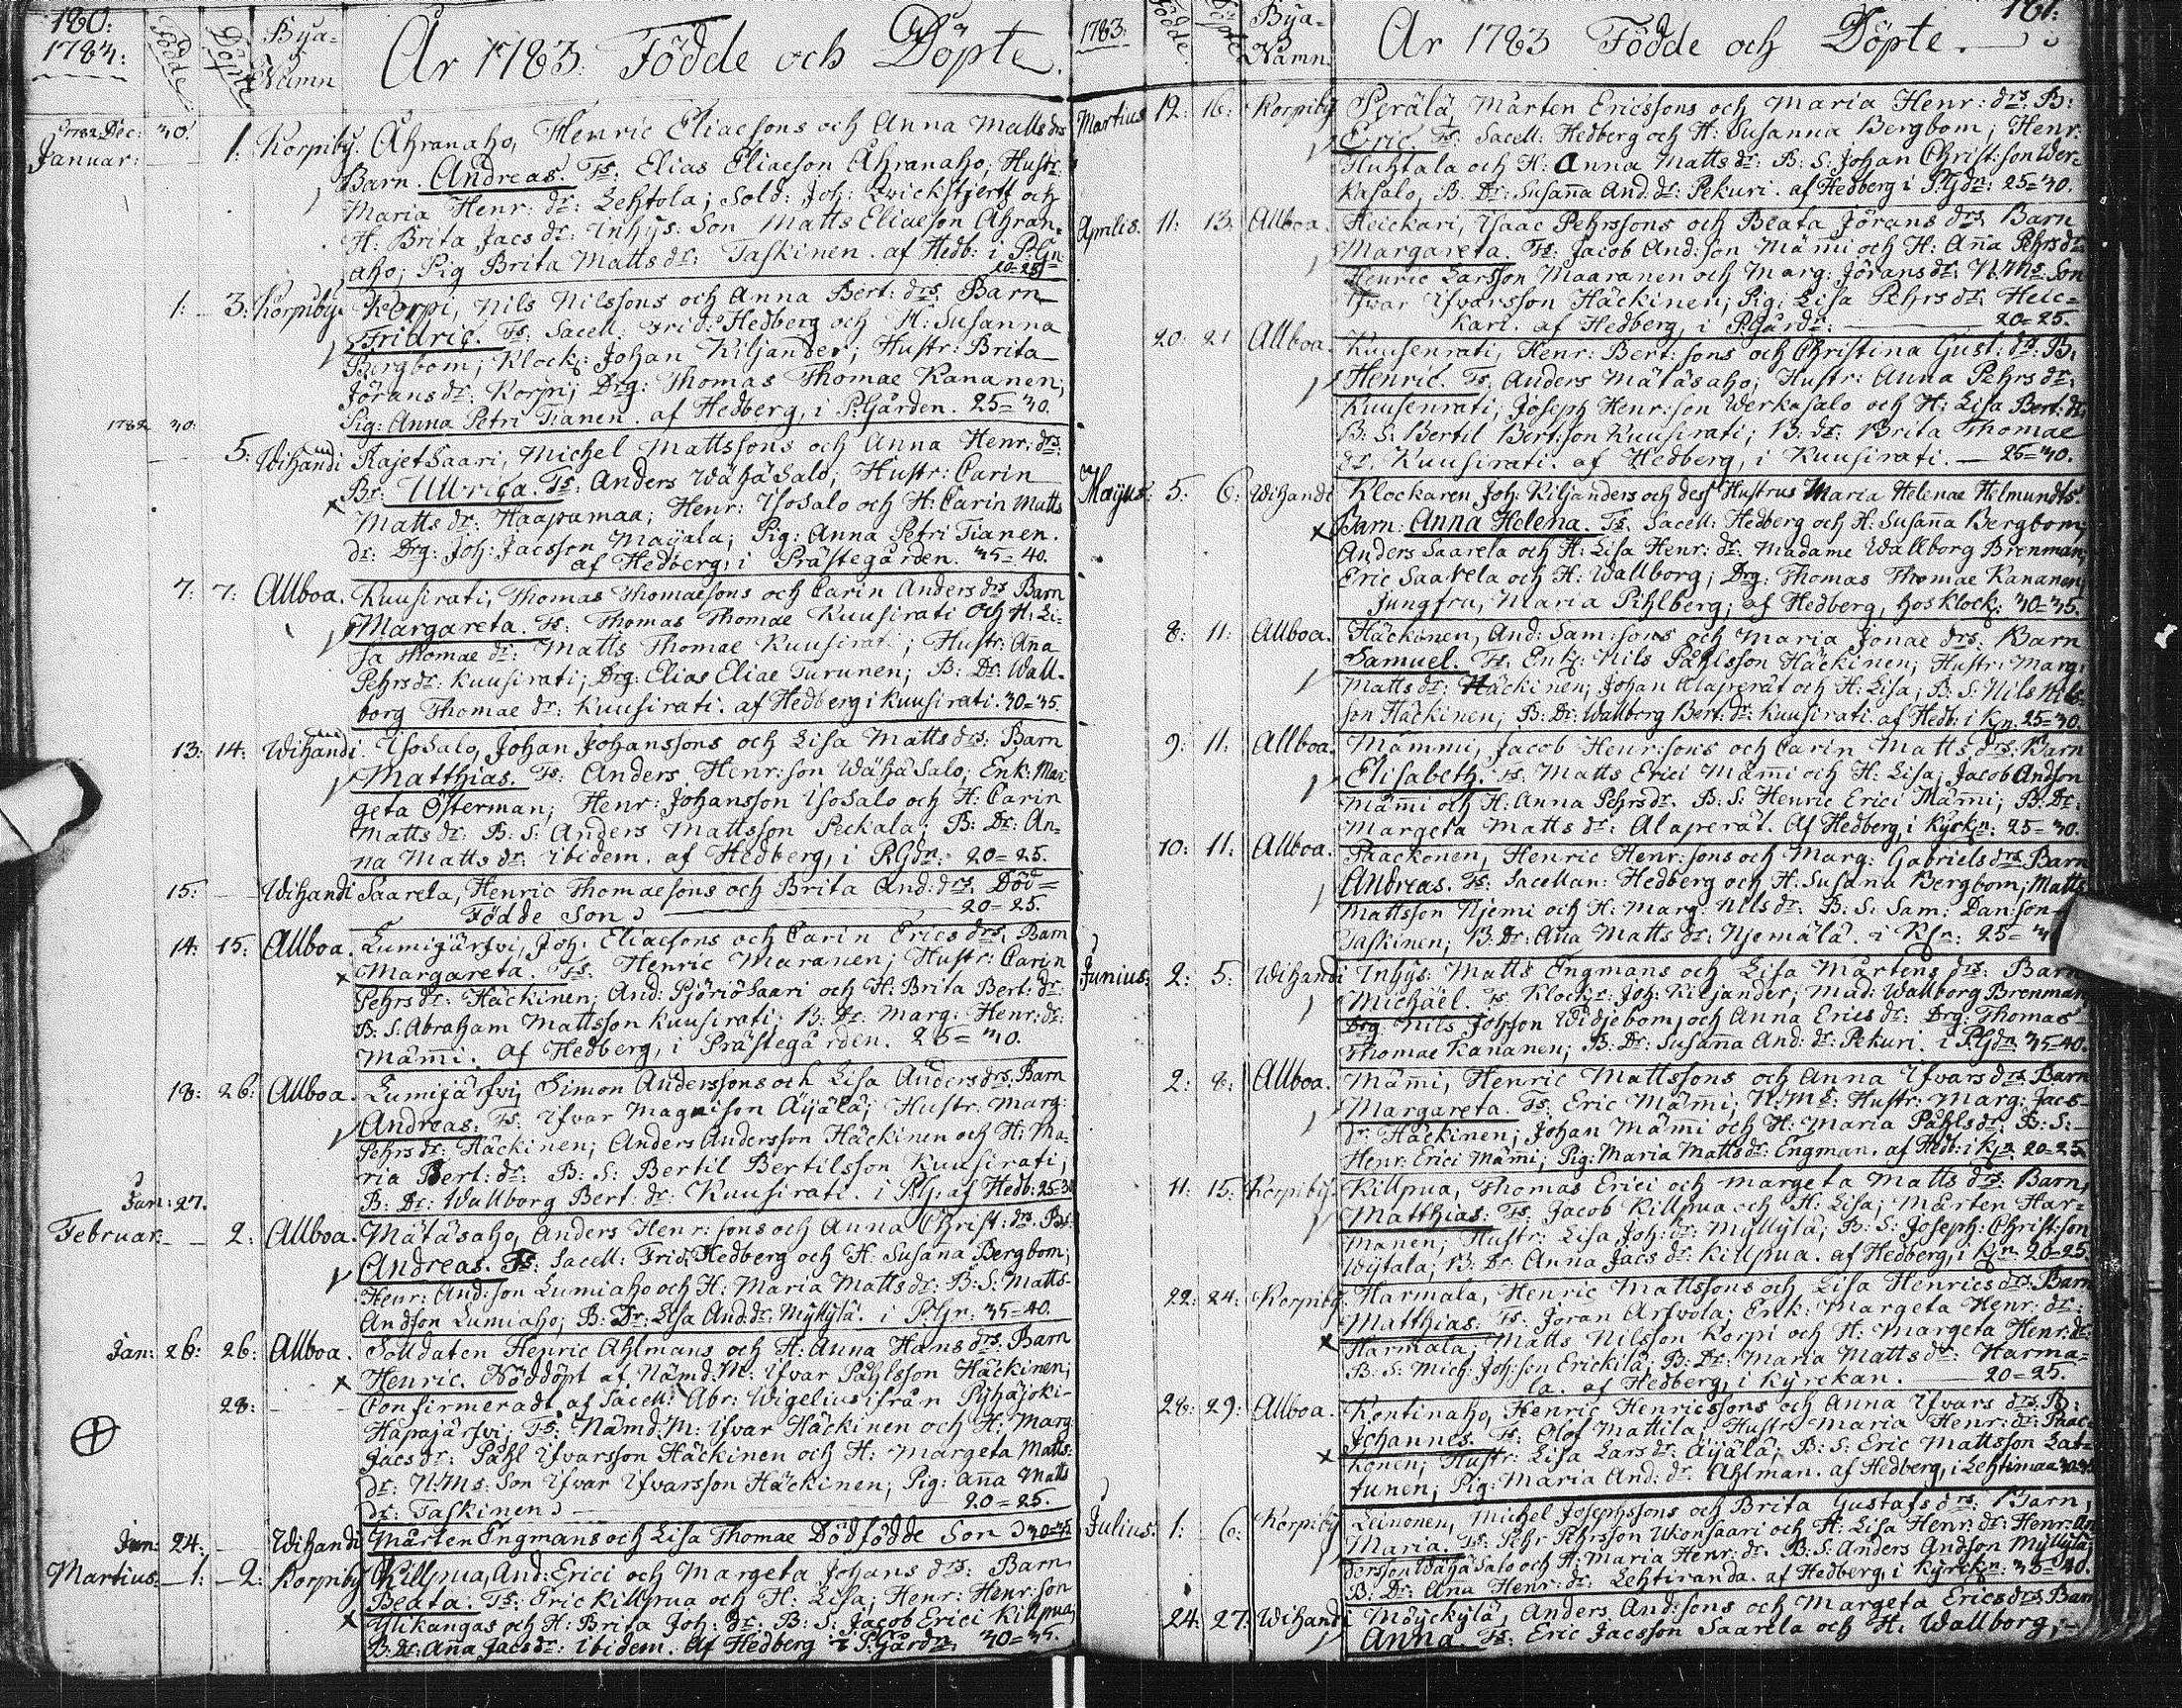 180:
1783: Födde Döpte Bya-Namn År 1783. Födde och Döpte.
1782 Dec: 30.
Januar: 1: Korpiby. Åhranaho, Henric Eliaesons och Anna Matts drs
Barn. Andreas. Ts: Elias Eliaeson Åhranaho, Hustr:
Maria Henr: dr: Lehtola; Sold: Joh: Qvickstjert och
H: Brita Jacs dr: Inhys: Son Matts Eliaeson Åhran-
aho; Pig Brita Matts dr: Taskinen. af Hedb: i P:Gn:
20=25.
1: 3: Korpiby. Korpi, Nils Nilssons och Anna Bert: drs: Barn
Fridric. Ts: Sacell: Frid: Hedberg och H: Susanna
Bergbom; Klock: Johan Kiljander; Hustr: Brita
Jörans dr: Korpi; Drg: Thomas Thomae Kananen;
Pig: Anna Petri Tianen. af Hedberg, i P:Gården. 25=30.
1782 30:
5: Wihandi Rajetsaari, Michel Mattssons och Anna Henr: drs:
Br: Ullrica. Ts: Anders Wähäsalo; Hustr: Carin
Matts dr: Haapamaa; Henr: Ysosalo och H: Carin Matts
dr: Drg: Joh: Jacsson Mayala; Pig: Anna Petri Tianen.
af Hedberg, i Prästegården. 35=40.
7: 7: Allboa. Kuusirati, Thomas Thomaesons och Carin Anders drs Barn
Margareta. Ts: Thomas Thomae Kuusirati och H: Li-
sa Thomae dr: Matts Thomae Kuusirati; Hustr: Anna
Pehrs dr: Kuusirati; Drg: Elias Eliae Turunen; B: Dr: Wall-
borg Thomae dr: Kuusirati. af Hedberg i Kuusirati. 30=35.
13: 14: Wihandi. Ysosalo, Johan Johanssons och Lisa Matts drs: Barn
Matthias. Ts: Anders Henr: son Wähäsalo; Enk: Mar-
geta Österman; Henr: Johansson Isosalo och H: Carin
Matts dr: B: S: Anders Mattsson Peckala; B: Dr: An-
na Matts dr: ibidem. af Hedberg, i P:Gdn: 20=25.
15: Wihandi Saarela, Henric Thomaesons och Brita And: drs. Död=
Födde Son 20=25.
14: 15: Allboa. Lumijärfvi, Joh: Eliaesons och Carin Erics drs: Barn
Margareta. Ts: Henric Maranen; Hustr: Carin
Pehrs dr: Häckinen; And: Pjöriösaari och H: Brita Bert: dr:
B: S: Abraham Mattsson Kuusirati; B: Dr: Marg: Henr: dr:
Mämi. af Hedberg, i Prästegården. 25=30.
18: 26: Allboa. Lumijärfvi, Simon Anderssons och Lisa Anders drs: Barn
Andreas. Ts: Ifvar Magnison Äyälä; Hustr: Marg:
Pehrs dr: Häckinen; Anders Andersson Häckinen och H: Ma-
ria Bert: dr: B: S: Bertil Bertilsson Kuusirati;
B: Dr: Wallborg Bert: dr: Kuusirati. i P:G: af Hedb: 25=30
Jan: 27.
Februar: 2: Allboa. Mätäsaho, Anders Henr: sons och Anna Christ: drs: Br:
Andreas. Ts: Sacell: Frid: Hedberg och H: Susana Bergbom;
Henr: And: son Lumiaho och H: Maria Matts dr: B: S: Matts
Andson Lumiaho; B: Dr: Lisa And: dr: Myllylä. i P:Gr: 35=40.
Jan: 26: 26: Allboa. Solldaten Henric Ahlmans och H: Anna Hans drs: Barn
Henric. Nöddöpt af Nämd: M: Ifvar Påhlsson Häckinen;
28: Confirmeradt af Sacell: Abr: Wigelius ifrån Pyhäjoki-
Hapajärfvi; Ts: Nämd: M: Ifvar Häckinen och H: Marg:
Jacs dr: Påhl Ifvarsson Häckinen och H: Margeta Matts
dr: N:Ms: Son Ifvar Ifvarsson Häckinen; Pig: Anna Matts
dr: Taskinen 20=25.
Jan: 24: Wihandi Mårten Engmans och Lisa Thomae Dödfödde Son 30=35
Martius: 1: 2: Korpiby Killpua, And: Erici och Margeta Johans drs: Barn
Beata. Ts: Eric Killpua och H: Lisa; Henr: Henr: son
Ylikangas och H: Brita Joh: dr: B: S: Jacob Erici Killpua;
B: Dr: Ana Jacs dr: ibidem. af Hedberg i P:Gårdn: 30=35.
181:
1783: Födde. Döpte Bya-Namn. År 1783 Födde och Döpte.
Martius 12: 16: Korpiby Perälä, Mårten Ericssons och Maria Henr: drs: B:
Eric. Ts: Sacell: Hedberg och H: Susanna Bergbom; Henr:
Huhtala och H: Anna Matts dr: B: S: Johan Christ: son Wer-
kasalo, B: Dr: Susana And: dr: Pekuri. af Hedberg i P:Gdn: 25=30.
Aprilis. 11: 13: Allboa. Heickari, Ysaac Pehrssons och Beata Jörans drs: Barn
Margareta. Ts: Jacob And: son Mämi och H: Ana Pehrs dr:
Henric Larsson Maaranen och Marg: Jörans dr: N:Ms: Son
Ifvar Ifvarsson Häckinen; Pig: Lisa Pehrs dr: Heic-
kari. af Hedberg, i P:Gårdn: 20=25.
20: 21 Allboa. Kuusenrati, Henr: Bert: sons och Christina Gust: drs: B:
Henric. Ts: Anders Mätäsaho; Hustr: Anna Pehrs dr:
Kuusenrati; Joseph Henr: son Werkasalo och H: Lisa Bert: dr:
B: S: Bertil Bert: son Kuusirati; B: dr: Brita Thomae
dr: Kuusirati. af Hedberg, i Kuusirati. 25=30.
Majus: 5: 6: Wihandi Klockaren Joh: Kiljanders och dess Hustrus Maria Helenae Helmundts
Barn: Anna Helena. Ts: Sacell: Hedberg och H: Susana Bergbom;
Anders Saarela och H: Lisa Henr: dr: Madame Wallborg Brenman;
Eric Saarela och H: Wallborg; Drg: Thomas Thomae Kananen;
Jungfru, Maria Pihlberg; af Hedberg, hos Klock: 30=35.
8: 11: Allboa. Häckinen, And: Sam: sons och Maria Jonae drs: Barn
Samuel. Ts: Enk: Nils Påhlsson Häckinen; Hustr: Marg:
Matts dr: Häckinen; Johan Alaperät och H: Lisa; B: S: Nils Nils-
son Häckinen; B: Dr: Wallborg Bert: dr: Kuusirati. af Hedb: i Kn: 25=30.
9: 11: Allboa. Mämmi, Jacob Henr: sons och Carin Matts drs: Barn
Elisabeth. Ts: Matts Erici Mämi och H: Lisa; Jacob Andson
Mämi och H: Anna Pehrs dr. B: S: Henric Erici Mämi; B: Dr:
Margeta Matts dr: Alaperät. Af Hedberg, i Kyrkn: 25=30.
10: 11: Allboa. Paackonen, Henric Henr: sons och Marg: Gabriels drs: Barn
Andreas. Ts: Sacellan: Hedberg och H: Susana Bergbom; Matts
Mattsson Njemi och H: Marg: Nils dr: B: S: Sam: Dan: son
Taskinen; B: Dr: Ana Matts dr: Njemälä. i Kn: 25=
Junius: 2: 5: Wihandi Inhys: Matts Engmans och Lisa Mårtens drs: Barn
Michäel. Ts: Klockr: Joh: Kiljander; Mad: Wallborg Brenman
Drg Nils Johsson Widjebom, och Anna Erics dr: Drg: Thomas
Thomae Kananen; B: Dr: Susana And: dr: Pekuri. i P:Gdn 35=40.
2: 8: Allboa. Mämi, Henric Mattssons och Anna Ifvars drs: Barn
Margareta. Ts: Eric Mämi; N:Ms: Hustr: Marg: Jacs
dr: Häckinen; Johan Mämi och H: Maria Påhls dr: B: S:
Henr: Erici Mämi; Pig: Maria Matts dr: Engman. af Hedb: i Kn: 20=25
11: 15: Korpiby Killpua, Thomas Erici och Margeta Matts drs: Barn,
Matthias: Ts: Jacob Killpua och H: Lisa; Mårten Har-
manen; Hustr: Lisa Joh: dr: Myllylä; B: S: Joseph: Christ: son
Wytala; B: Dr: Anna Jacs dr: Killpua. af Hedberg, i Kn. 20=25.
22: 24: Korpiby Harmala, Henric Mattssons och Lisa Henrics drs: Barn
Matthias: Ts: Joran Arfvola; Enk: Margeta Henr: dr:
Harmala; Matts Nilsson Korpi och H: Margeta Henr: dr:
B: S: Mich: Joh: son Erickilä; B: Dr: Maria Matts dr: Harma-
la. af Hedberg, i Kyrckan. 20=25.
28: 29: Allboa. Kontinaho, Henric Henricssons och Anna Ifvars drs: B:
Johannes. Ts: Olof Mattila; Hustr Maria Henr: dr: Paac-
konen; Hustr: Lisa Lars dr: Äyälä; B: S: Eric Mattsson Lat-
tunen; Pig: Maria And: dr: Ahlman. af Hedberg, i Lehtimaa
Julius: 1: 6: Korpiby Leinonen, Michel Josephssons och Brita Gustafs drs: Barn,
Maria. Ts: Pehr Pehrsson Ukonsaari och H: Lisa Henr: dr: Henr: An
dersson Wähäsalo och H: Maria Henr: dr. B: S: Anders Andson Myllylä;
B: Dr: Ana Henr: dr: Lehtiranda. af Hedberg, i Kyrckn: 35=40.
24: 27: Wihandi Möyckylä, Anders And: sons och Margeta Erics drs Barn
Anna. Ts: Eric Jacsson Saarela och H: Wallborg;